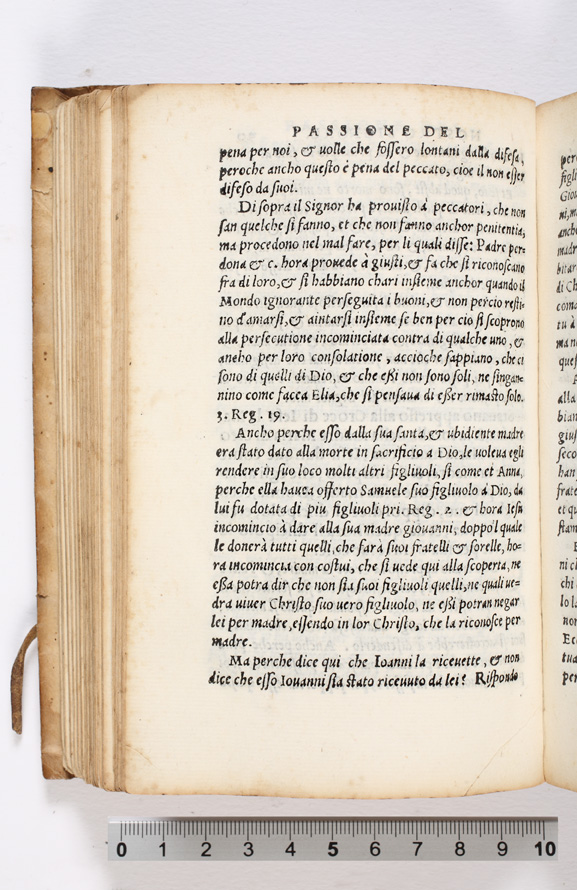 PASSIONE DEL
pena per noi, & uolle che fossero lontani dalla difesa,
peroche ancho questo è pena del peccato, cioe il non esser
difeso da suoi.
Di sopra il Signor ha prouisto à peccatori, che non
san quelche si fanno, et che non fanno anchor penitentia,
ma procedono nel mal fare, per li quali disse: Padre per-
dona & c. hora prouede à giusti, & fa che si riconoscano
fra di loro, & si habbiano chari insieme anchor quando il
Mondo ignorante perseguita i buoni, & non percio resti-
no d'amarsi, & aintarsi insieme se ben per cio si scoprono
alla persecutione incominciata contra di qualche uno, &
ancho per loro consolatione, accioche sappiano, che ci
sono di quelli di Dio, & che essi non sono soli, ne s'ingan-
nino come facea Elia, che si pensaua di esser rimasto solo.
3. Reg. 19.
Ancho perche esso dalla sua santa, & ubidiente madre
era stato dato alla morte in sacrificio a Dio, le uoleua egli
rendere in suo loco molti altri figliuoli, si come et Anna,
perche ella hauea offerto Samuele suo figliuolo à Dio, da
lui fu dotata di piu figliuoli pri. Reg. 2. & hora Iesu
incomincio à dare alla sua madre giouanni, doppo'l quale
le donerà tutti quelli, che farà suoi fratelli & sorelle, ho-
ra incomincia con costui, che si uede qui alla scoperta, ne
essa potra dir che non sia suoi figliuoli quelli, ne quali ue-
dra uiuer Christo suo uero figliuolo, ne essi potran negar
lei per madre, essendo in lor Christo, che la riconosce per
madre.
Ma perche dice qui che Ioanni la riceuette, & non
dice che esso Iouanni sia stato riceuuto da lei? Rispondo
0 1 2 3 4 5 6 7 8 9 10